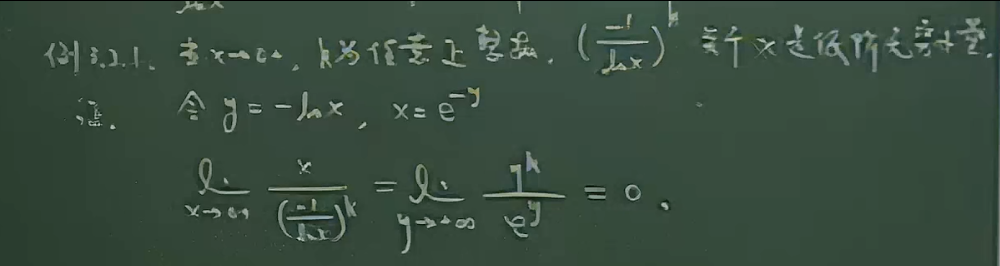 例3.2.1. 当 x→0+, k为任意正整数, (-1/ln x)^k 关于 x 是低阶无穷小量.
证. 令 y = -ln x, x = e^{-y}
lim_{x→0+} x/(-1/ln x)^k = lim_{y→+∞} y^k/e^y = 0.